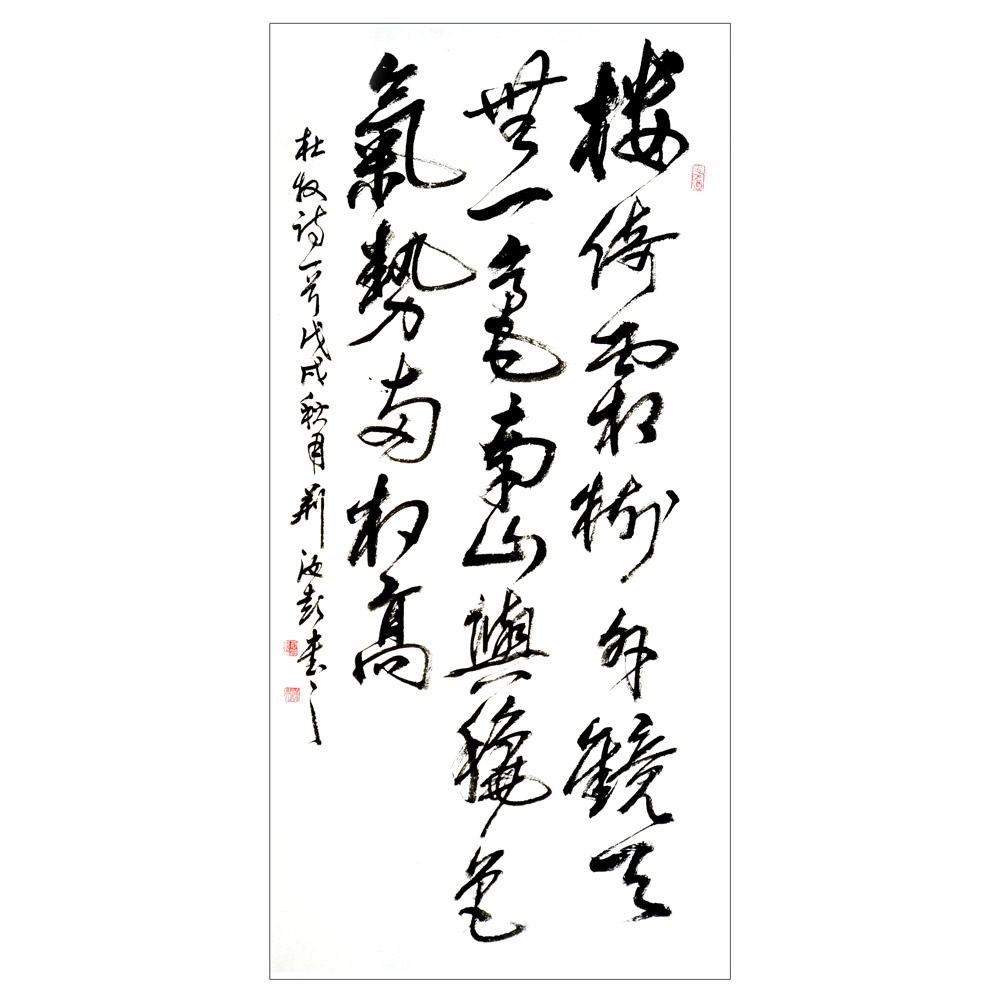 樓倚霜樹外鏡天
無一毫南山與秋色
氣勢兩相高
杜牧詩一首戊戌秋月荊汝彭書之